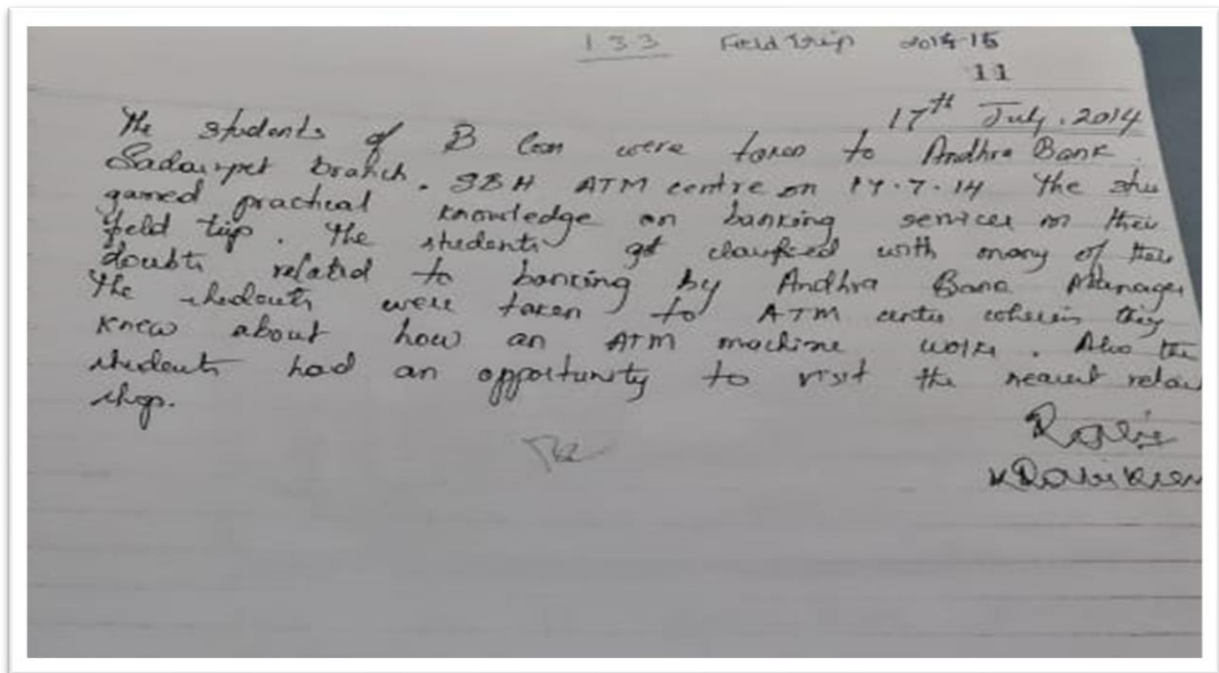 133 Field Trip 2014-15
11
17th July, 2014
The students of B Com were taken to Andhra Bank
branch. SBH ATM centre on 17.7.14 The stu
gained practical knowledge on banking services in their
field trip. The students got clarified with many of their
doubts related to banking by Andhra Bank Manager
The students were taken to ATM centre wherein they
knew about how an ATM machine works. Also the
students had an opportunity to visit the nearest retail
shop.